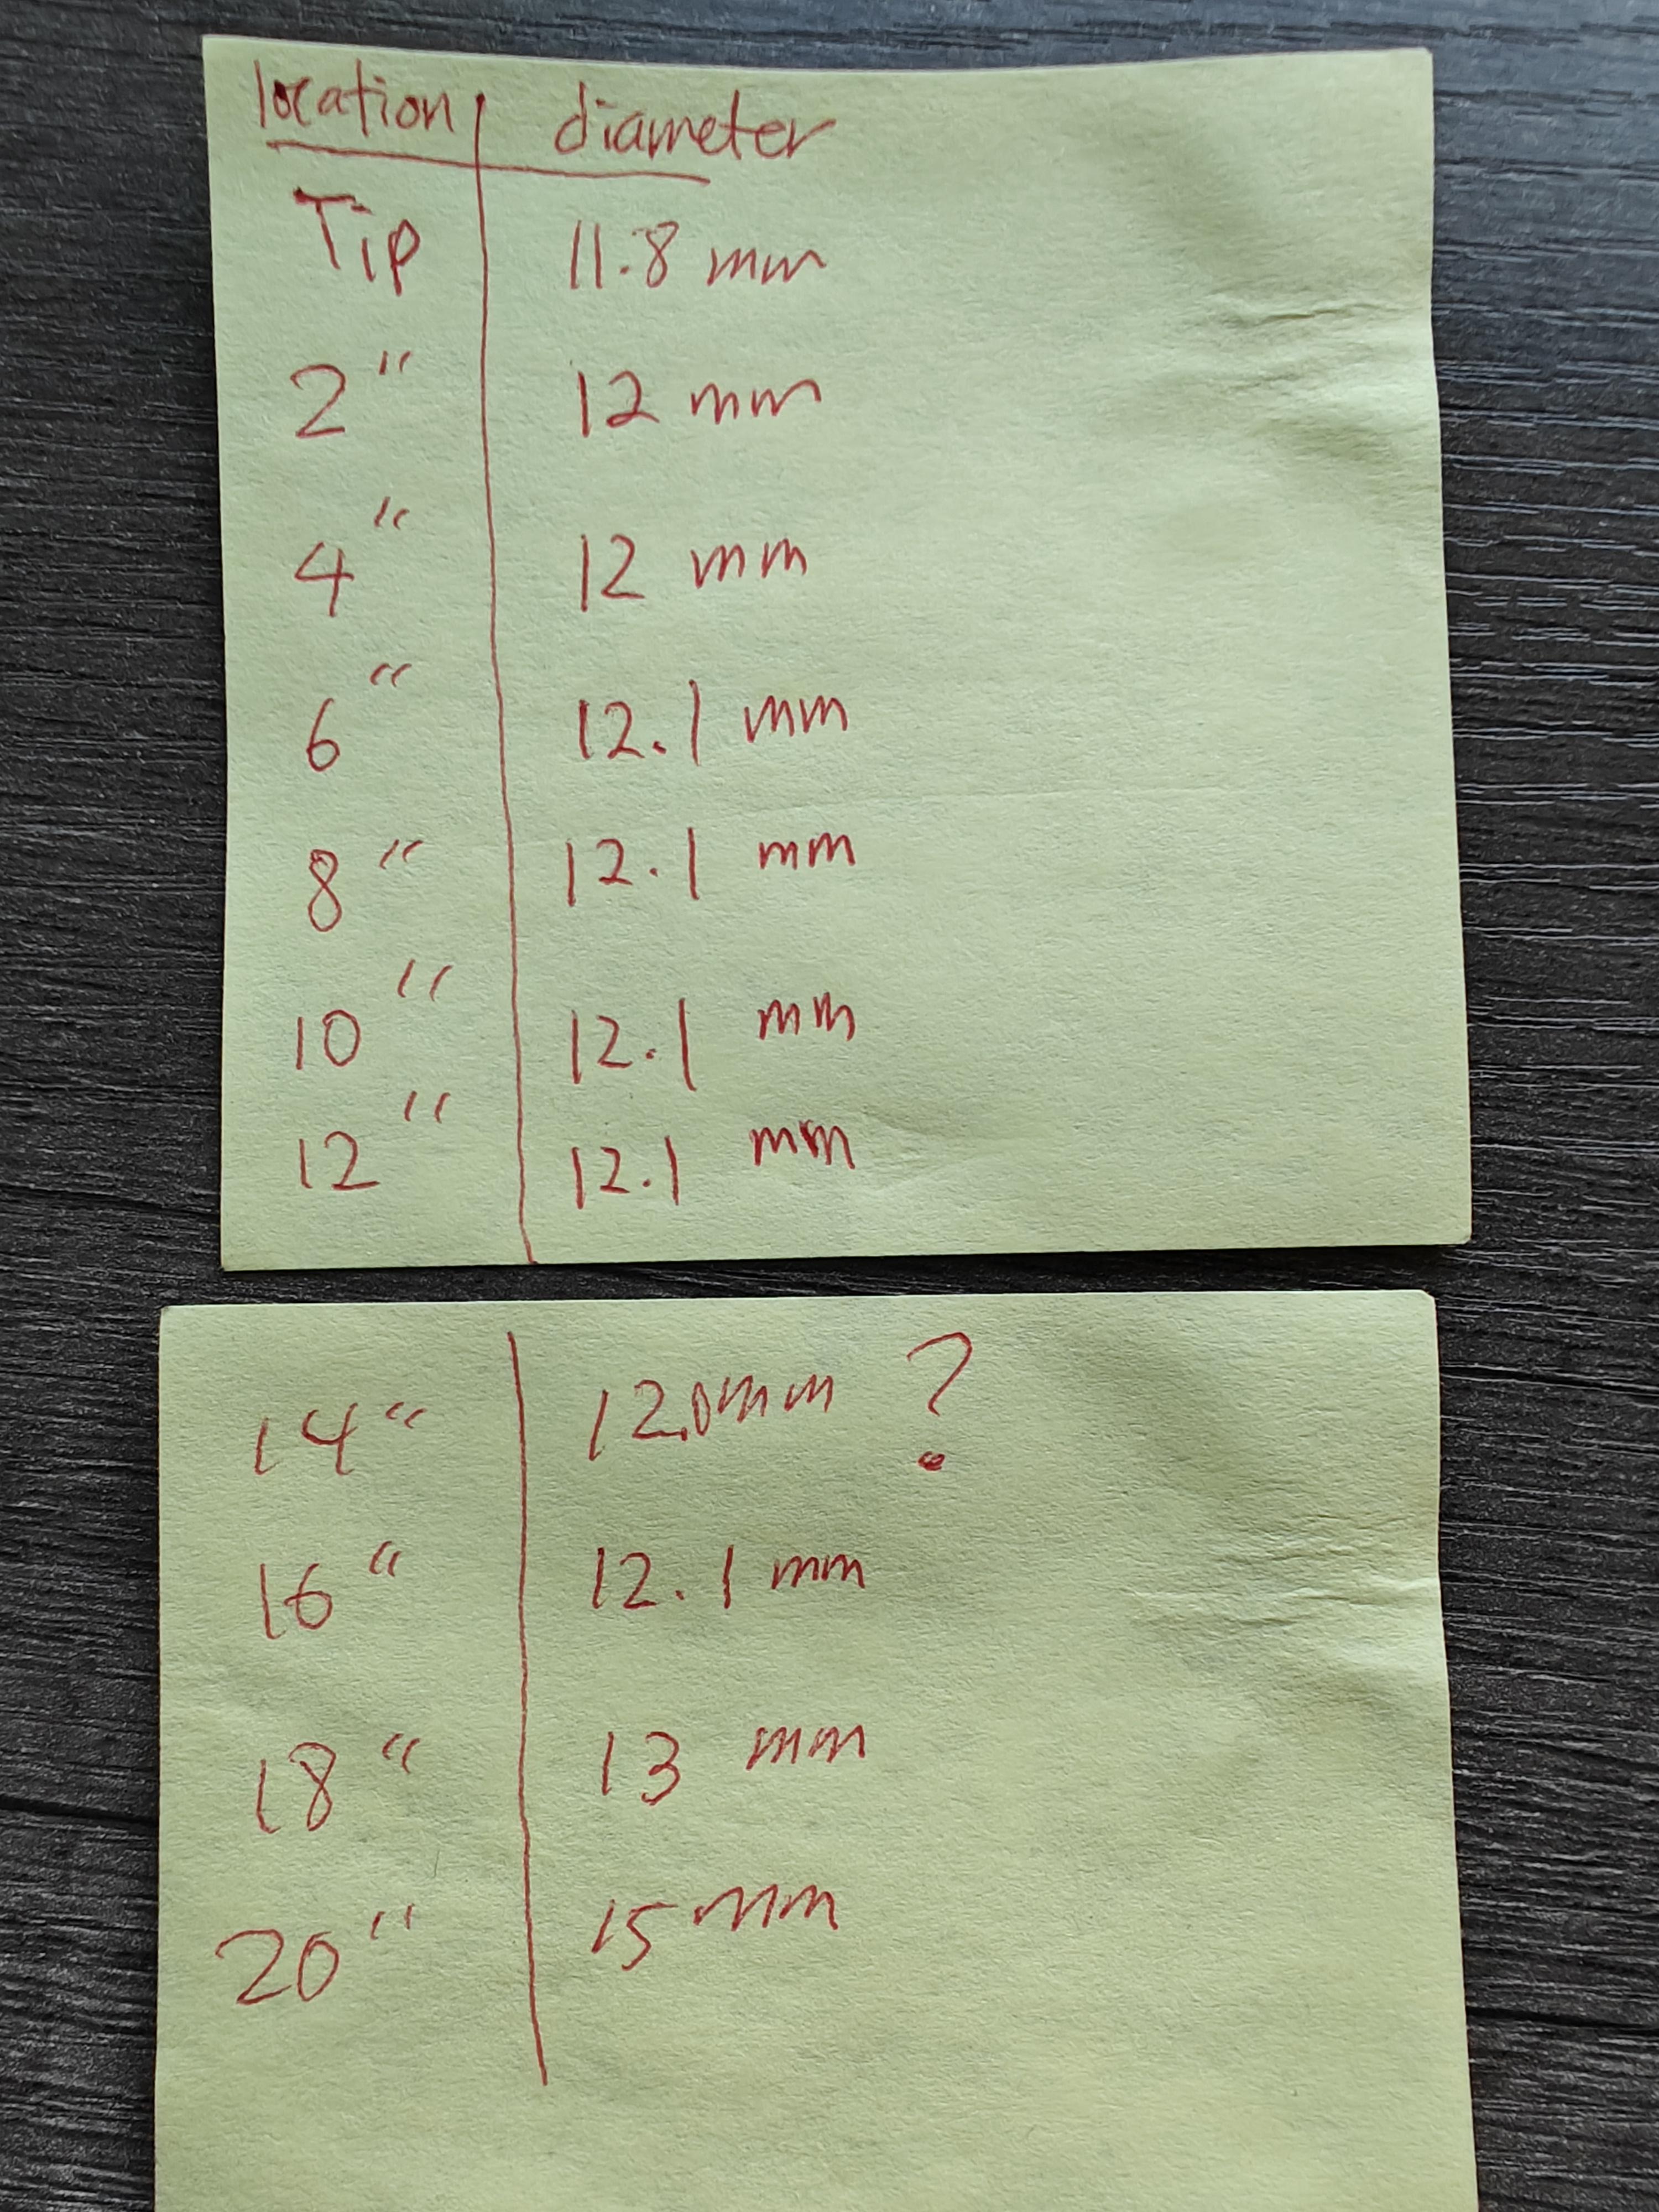 location diameter
Tip 11.8 mm
2" 12 mm
4" 12 mm
6" 12.1 mm
8" 12.1 mm
10" 12.1 mm
12" 12.1 mm
14" 12.0mm ?
16" 12.1 mm
18" 13 mm
20" 15mm